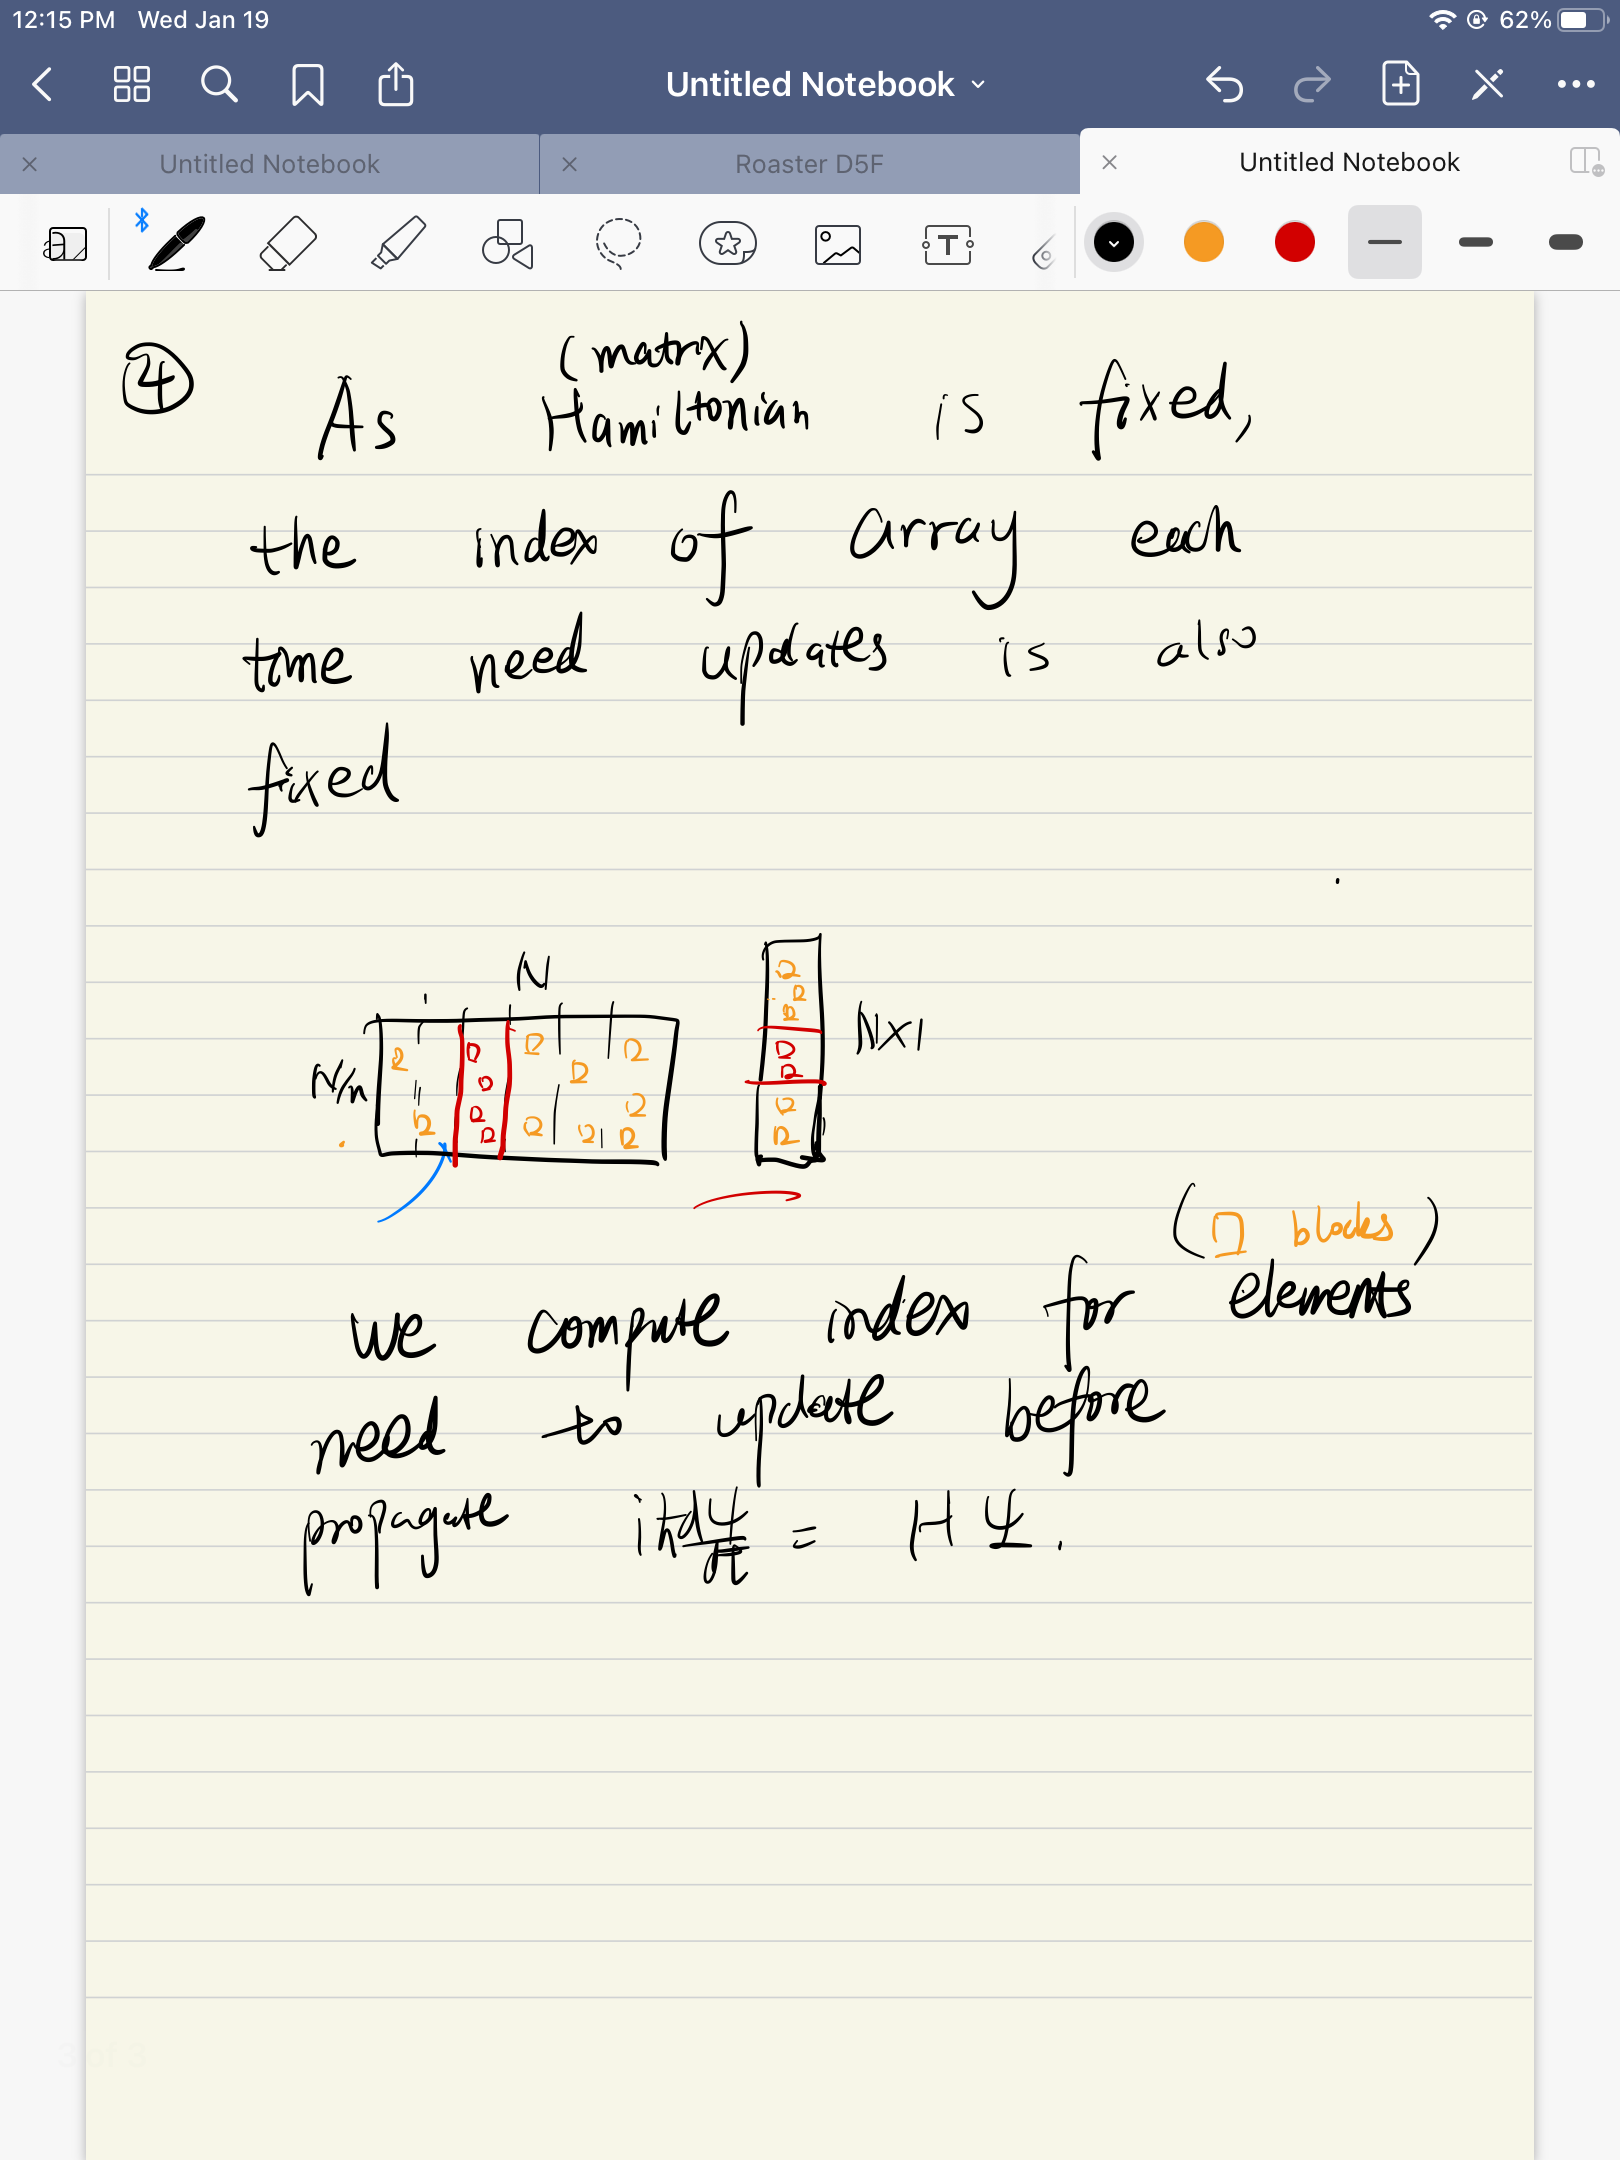 12:15 PM Wed Jan 19 62%
Untitled Notebook
Untitled Notebook Roaster D5F Untitled Notebook
④
(matrix)
As Hamiltonian is fixed,
the index of array each
time need updates is also
fixed
N
N/n
N×1
(□ blocks)
we compute index for elements
need to update before
propagate iħ dΨ/dt = HΨ.
3 of 3